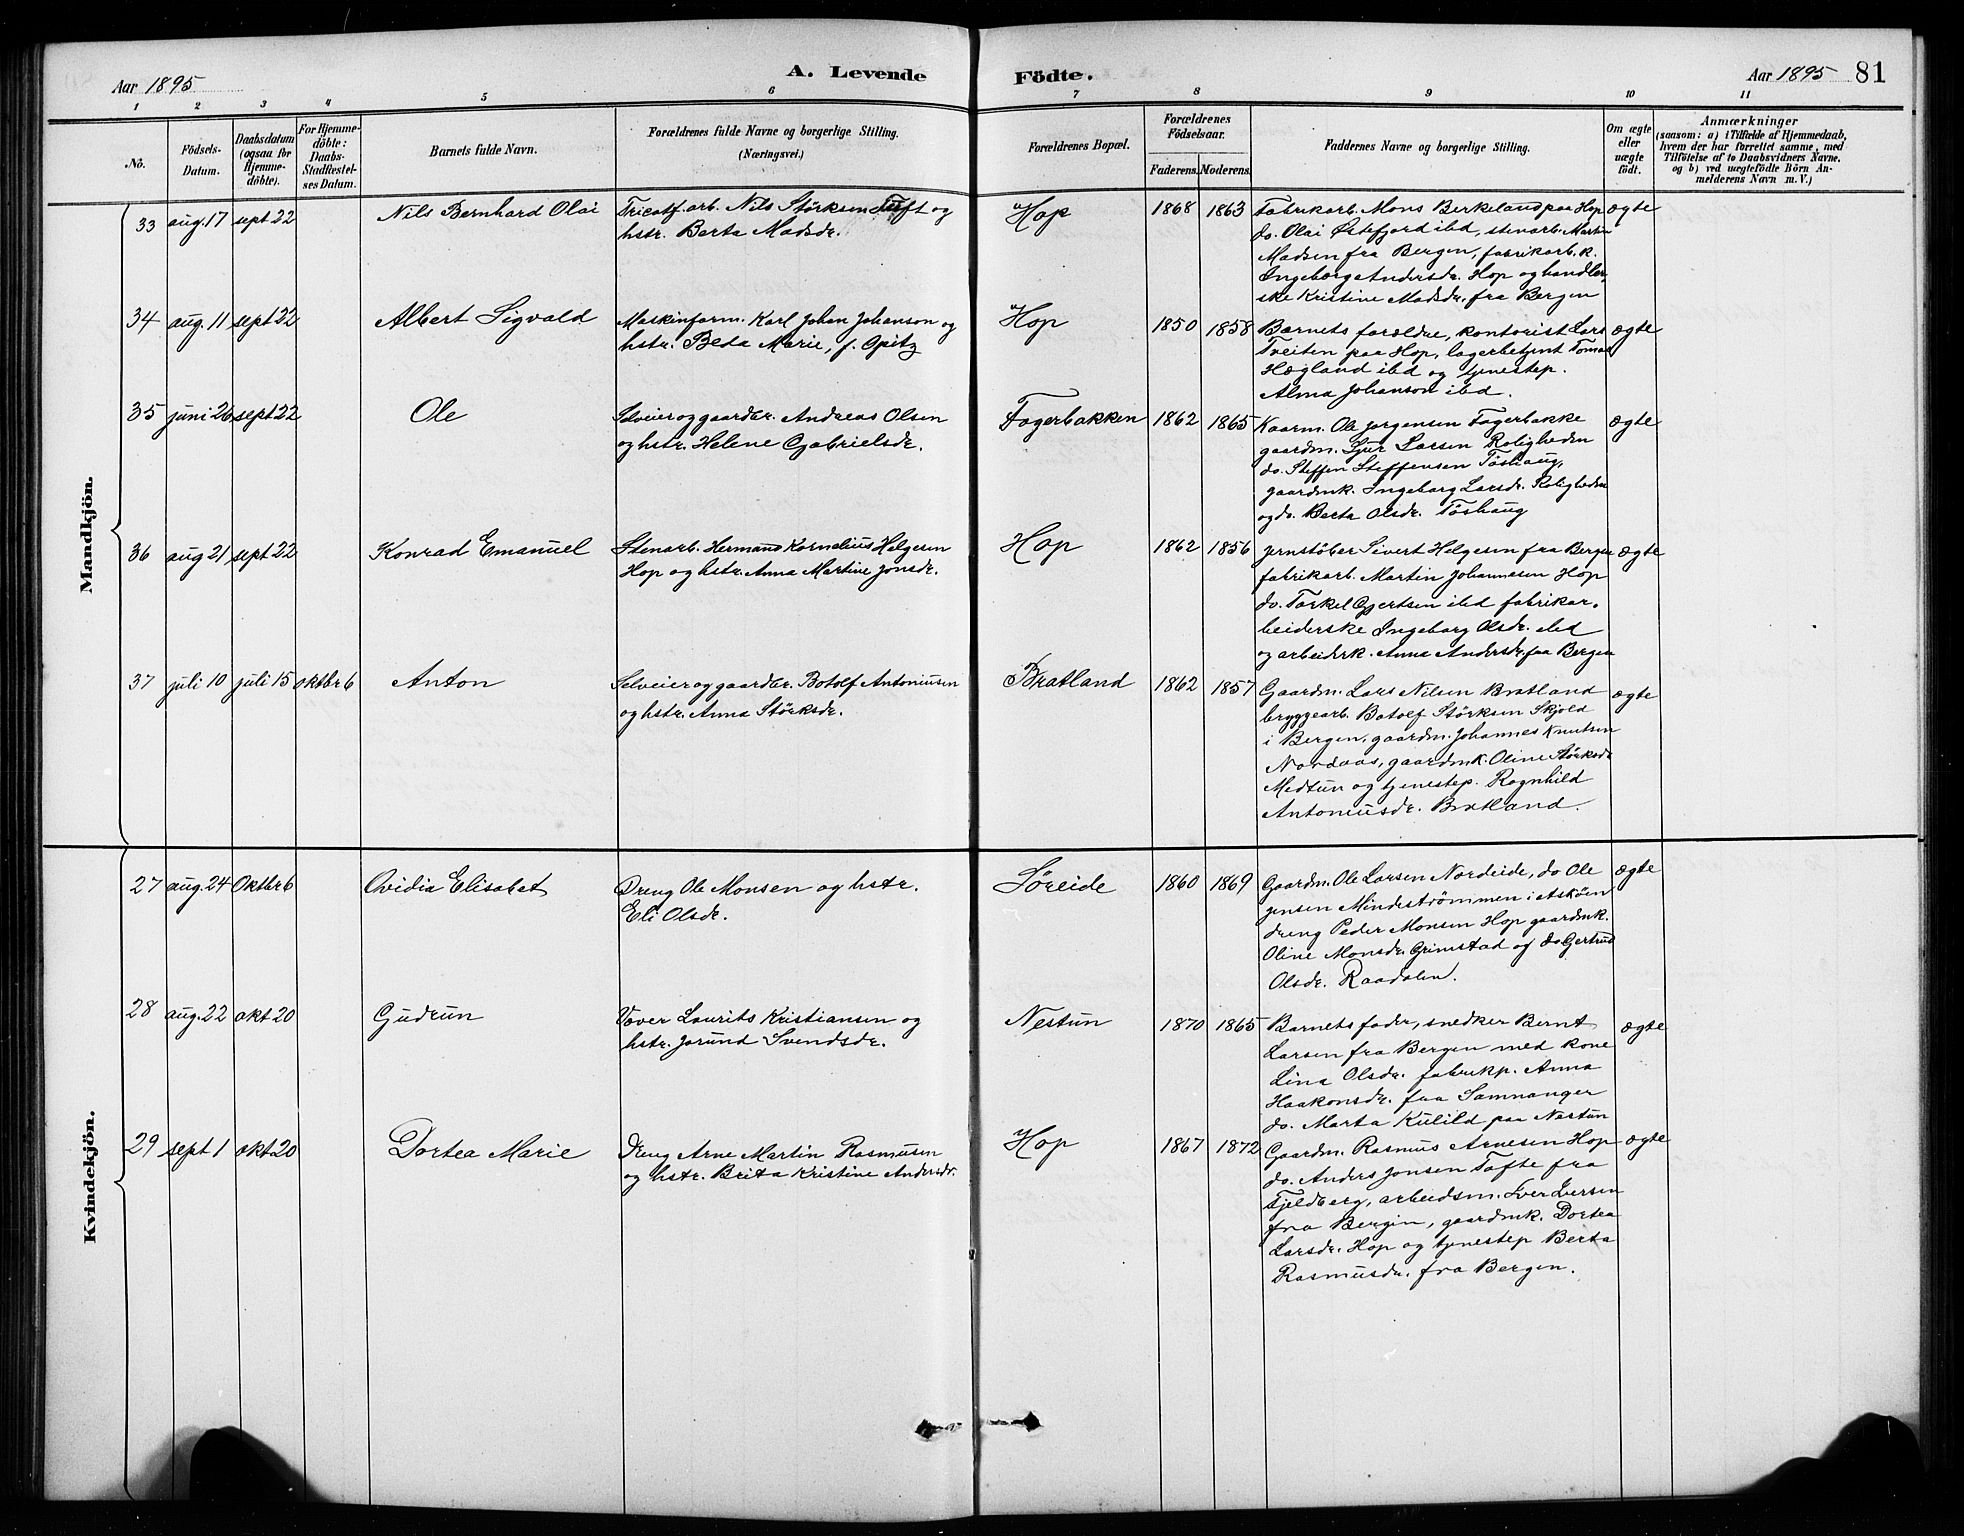 Aar 1895
A. Levende Födte.
Aar 1895 81
1 2 3 4 5 6 7 8 9 10 11
No.
Födsels-
Datum.
Daabsdatum
(ogsaa for
Hjemme-
döbte).
For Hjemme-
döbte:
Daabs-
Stadfæstel-
ses Datum.
Barnets fulde Navn.
Forældrenes fulde Navne og borgerlige Stilling.
(Næringsvei.)
Forældrenes Bopæl.
Forældrenes
Födselsaar.
Faderens. Moderens.
Faddernes Navne og borgerlige Stilling.
Om ægte
eller
uægte
födt.
Anmærkninger
(saasom: a) i Tilfælde af Hjemmedaab,
hvem der har forrettet samme, med
Tilföielse af to Daabsvidners Navne.
og b) ved uægtefödte Börn An-
melderens Navn m. V.)
Mandkjön.
33 aug. 17 sept 22 Nils Bernhard Olai
Tricotf. arb. Nils Störksen Tuft og
hstr. Berta Madsdr.
Hop 1868 1863
Fabrikarb. Mons Birkeland paa Hop
do. Olai Østefjord ibd, stenarb. Martin
Madsen fra Bergen, fabrikarb.k.
Ingeborg Andersdr. Hop og handler-
ske Kristine Madsdr. fra Bergen
ægte
34 aug. 11 sept 22 Albert Sigvald
Maskinform. Karl Johan Johanson og
hstr. Beda Marie, f. Opitz
Hop 1850 1858
Barnets forældre, kontorist Lars
Tveiten paa Hop, lagerbetjent Tomas
Hægland ibd og tjenestep.
Alma Johanson ibd.
ægte
35 juni 26 sept 22 Ole
Selveier og gaardbr. Andreas Olsen
og hstr. Helene Gabrielsdr.
Fagerbakken 1862 1865
Kaarm. Ole Jørgensen Fagerbakke
gaardm. Sjur Larsen Roligheden
do. Steffen Steffensen Töshaug,
gaardmk. Ingeborg Larsdr. Roligheden
og do. Berta Olsdr. Töshaug
ægte
36 aug 21 sept 22 Konrad Emanuel
Stenarb. Hermand Kornelius Helgesen
Hop og hstr. Anna Martine Jonsdr.
Hop 1862 1856
Jernstöber Sivert Helgesen fra Bergen
fabrikarb. Martin Johannesen Hop
do. Torkel Gjertsen ibd fabrikar-
beiderske Ingeborg Olsdr. ibd
og arbeiderk. Anna Andersdr. fra Bergen
ægte
37 juli 10 juli 15 oktbr 6 Anton
Selveier og gaardbr. Botolf Antoniusen
og hstr. Anna Störksdr.
Bratland 1862 1857
Gaardm. Lars Nilsen Bratland
bryggearb. Botolf Störksen Skjold
i Bergen, gaardm. Johannes Knutsen
Nordaas, gaardmk. Oline Störksdr
Medtun og tjenestep. Ragnhild
Antoniusdr. Bratland.
ægte
Kvindekjön.
27 aug. 24 Oktbr 6 Ovidia Elisabet
Dreng Ole Monsen og hstr.
Eli Olsdr.
Søreide 1860 1869
Gaardm. Ole Larsen Nordeide, do Ole
Jensen Mindeströmmen i Askøen
dreng Peder Monsen Hop gaardmk.
Oline Monsdr. Grimstad og do Gertrud
Olsdr. Raadalen.
ægte
28 aug. 22 okt 20 Gudrun
Væver Laurits Kristiansen og
hstr. Jorund Svendsdr.
Nestun 1870 1865
Barnets fader, snedker Bernt
Larsen fra Bergen med kone
Lina Olsdr. fabrikp. Anna
Haakonsdr. fra Samnanger
do. Marta Kulild paa Nestun
ægte
29 sept 1 okt 20 Dortea Marie
Dreng Arne Martin Rasmusen
og hstr. Brita Kristine Andersdr.
Hop 1867 1872
Gaardm. Rasmus Arnesen Hop
do. Anders Jonsen Tofte fra
Fjeldberg, arbeidsm. Iver Iversen
fra Bergen, gaardmk. Dortea
Larsdr. Hop og tjenestep Berta
Rasmusdr. fra Bergen.
ægte